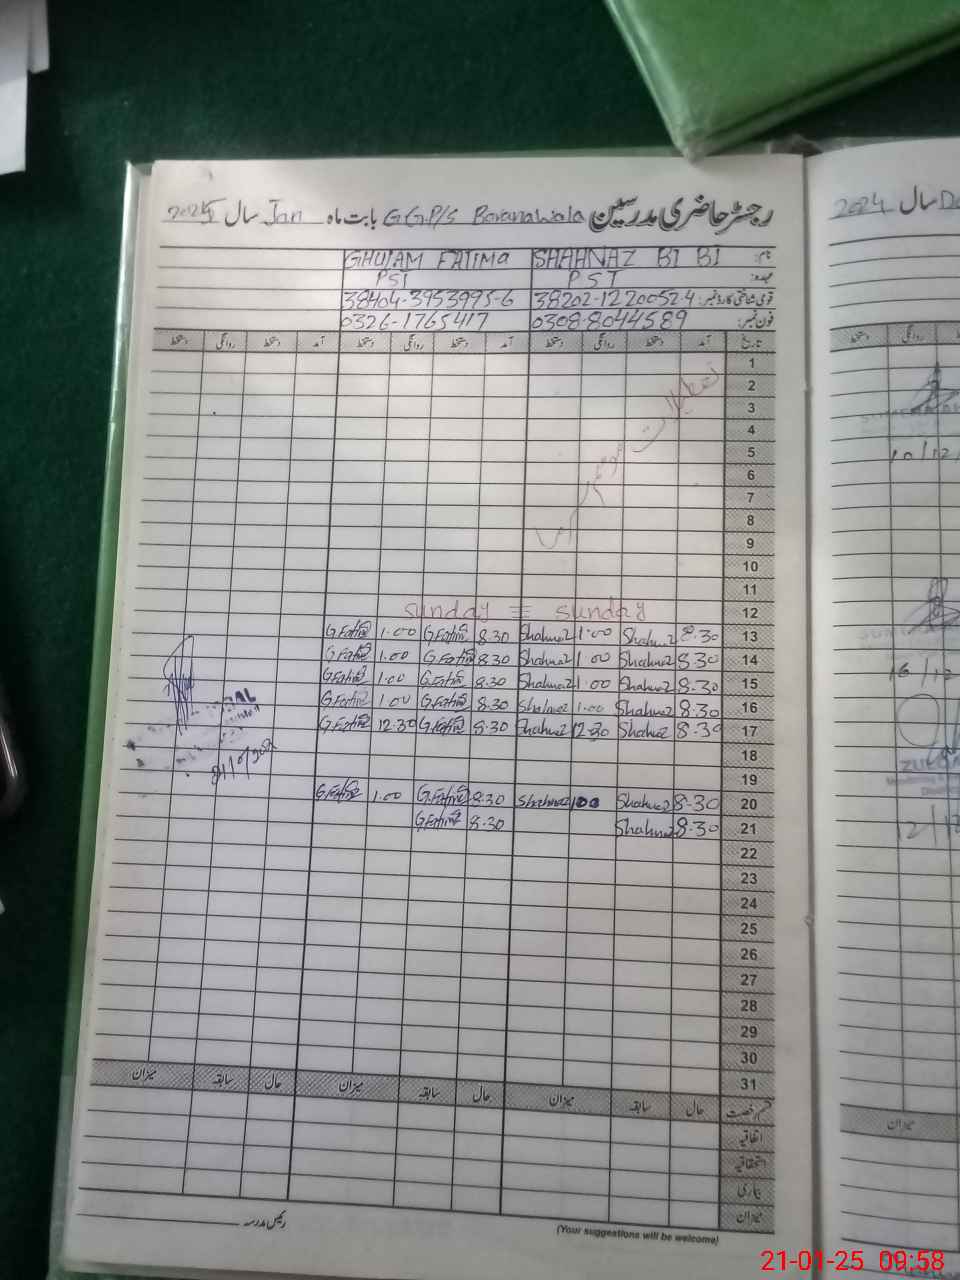 رجسٹر حاضری مدرسین G.G.P/S Boranawala بابت ماہ Jan سال 2025
نام: SHAHNAZ BI BI GHULAM FATIMA
عہدہ: PST PST
قومی شناختی کارڈ نمبر: 38202-1220052-4 38404-3953995-6
فون نمبر: 0308-8044589 0326-1765417
تاریخ آمد دستخط روانگی دستخط آمد دستخط روانگی دستخط آمد دستخط روانگی دستخط
1
2
3
4
5
6
7
8
9
10
11
12 sunday = sunday
13 8.30 Shahnaz 1.00 Shahnaz 8.30 G.Fatima 1.00 G.Fatima
14 8.30 Shahnaz 1.00 Shahnaz 8.30 G.Fatima 1.00 G.Fatima
15 8.30 Shahnaz 1.00 Shahnaz 8.30 G.Fatima 1.00 G.Fatima
16 8.30 Shahnaz 1.00 Shahnaz 8.30 G.Fatima 1.00 G.Fatima
17 8.30 Shahnaz 12.30 Shahnaz 8.30 G.Fatima 12.30 G.Fatima
18
19
20 8.30 Shahnaz 1.00 Shahnaz 8.30 G.Fatima 1.00 G.Fatima
21 8.30 Shahnaz 8.30 G.Fatima
22
23
24
25
26
27
28
29
30
31
قسم رخصت حال سابقہ میزان حال سابقہ میزان حال سابقہ میزان
اتفاقیہ
استحقاقیہ
بیماری
میزان
رئیس مدرسہ
(Your suggestions will be welcome)
2024 سال
دستخط روانگی
10/12
16/12
12/12
میزان
21-01-25 09:58